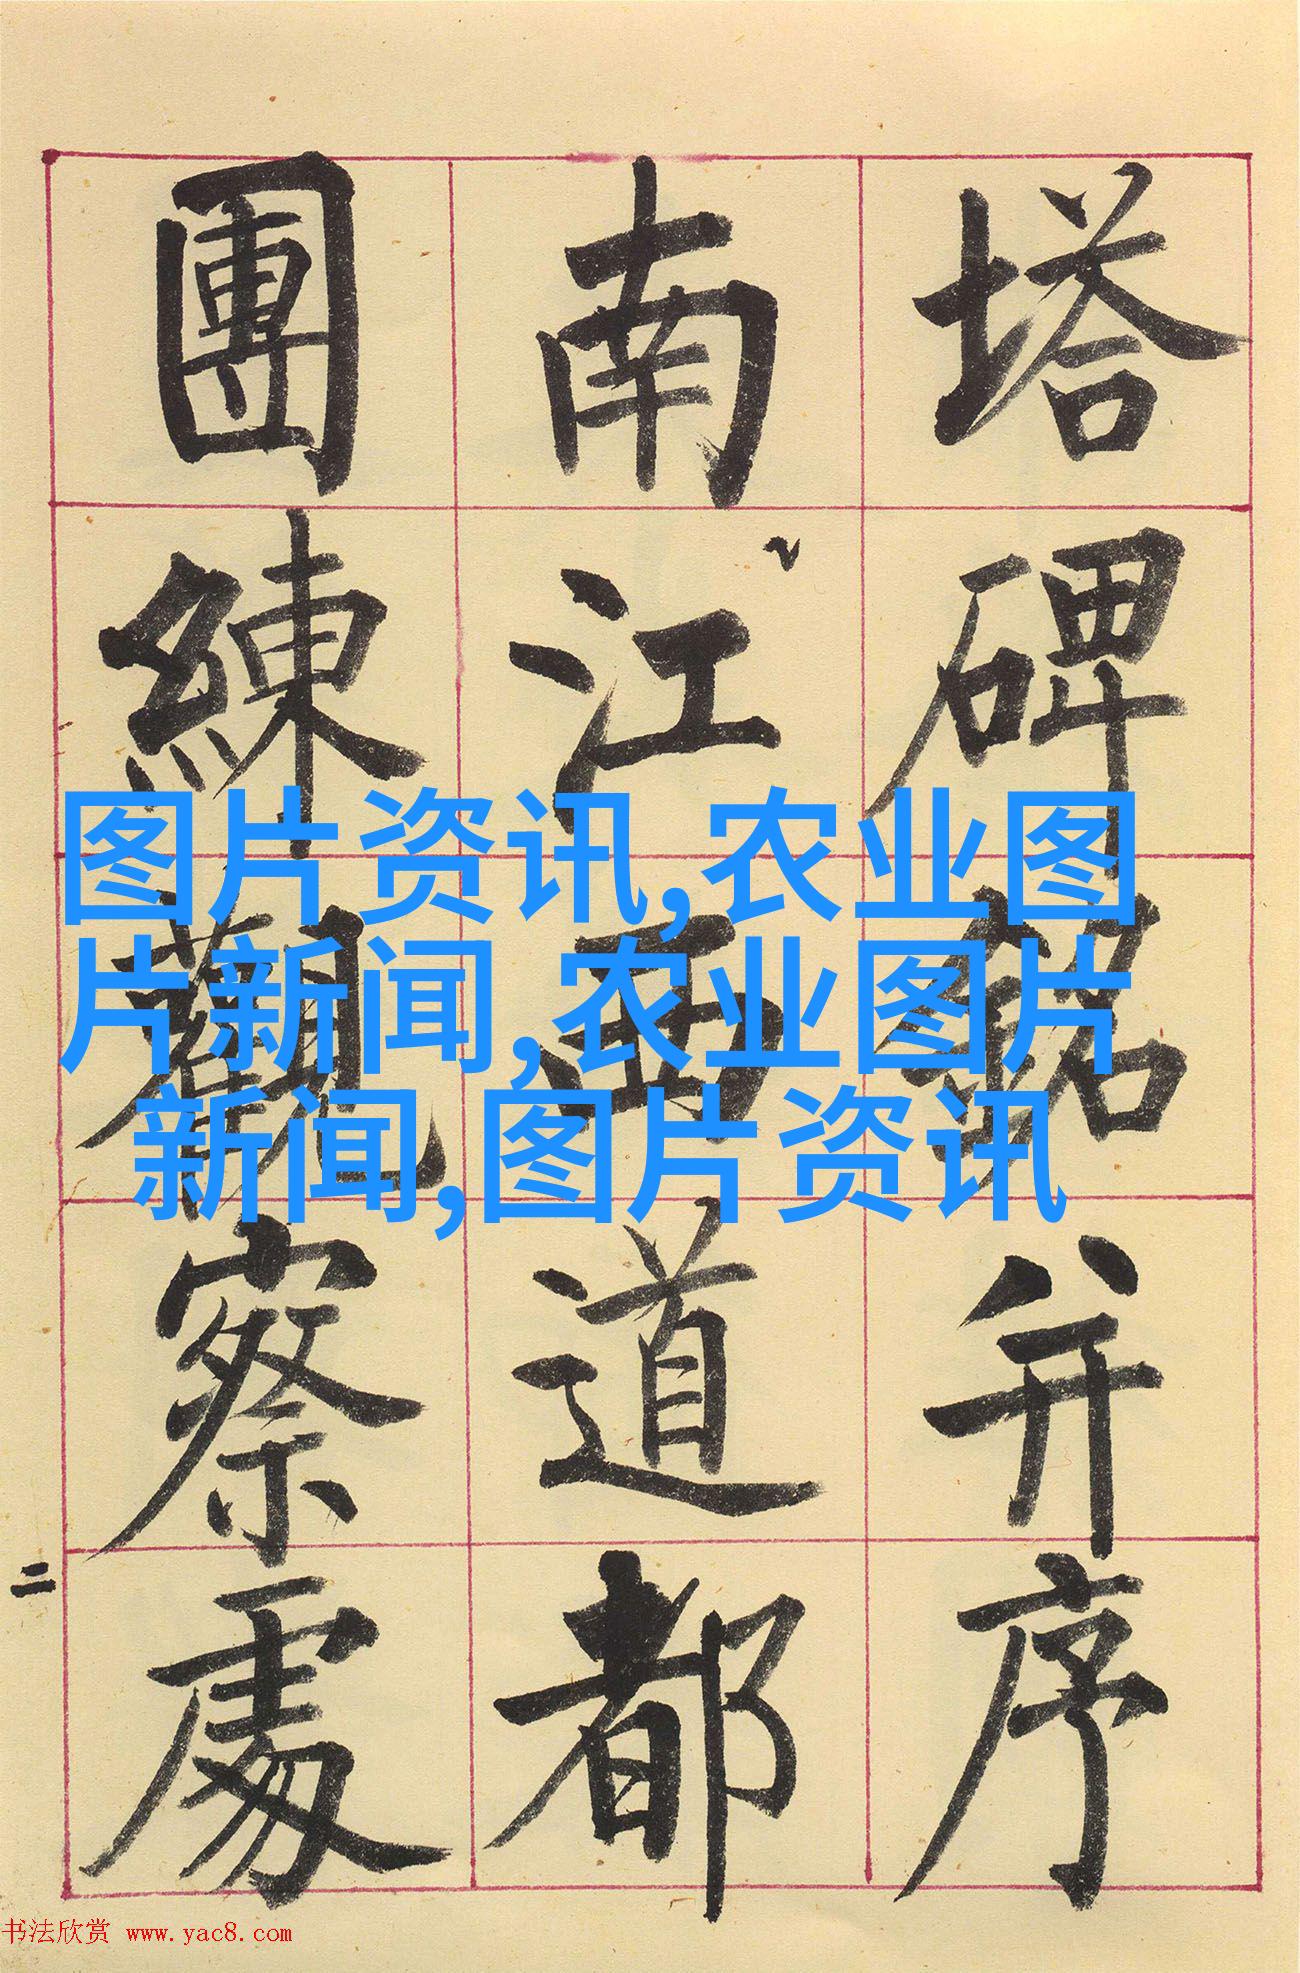 塔碑銘并序
南江西道都
團練觀察處
二
图片资讯,农业图
片新闻,农业图片
新闻,图片资讯
书法欣赏 www.yac8.com